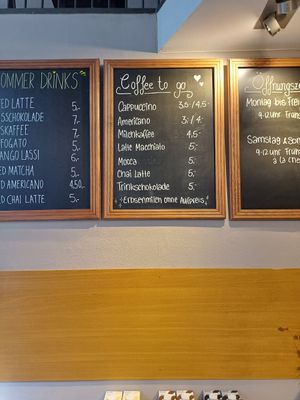 OMMER DRINKS
ED LATTE 5,-
SSCHOKOLADE 7,-
SKAFFEE 7,-
FOGATO 5,-
ANGO LASSI 6,-
ED MATCHA 5,-
ED AMERICANO 4,50,-
ED CHAI LATTE 5,-
Coffee to go
Cappuccino 3,5/4,5,-
Americano 3,/4,-
Milchkaffee 4,5,-
Latte Macchiato 5,-
Mocca 5,-
Chai Latte 5,-
Trinkschokolade 5,-
Erbsenmilch ohne Aufpreis
Öffnungsze
Montag bis Frei
9-12 uhr Früh
Samstag & Son
9-12 uhr Frühs
à la c